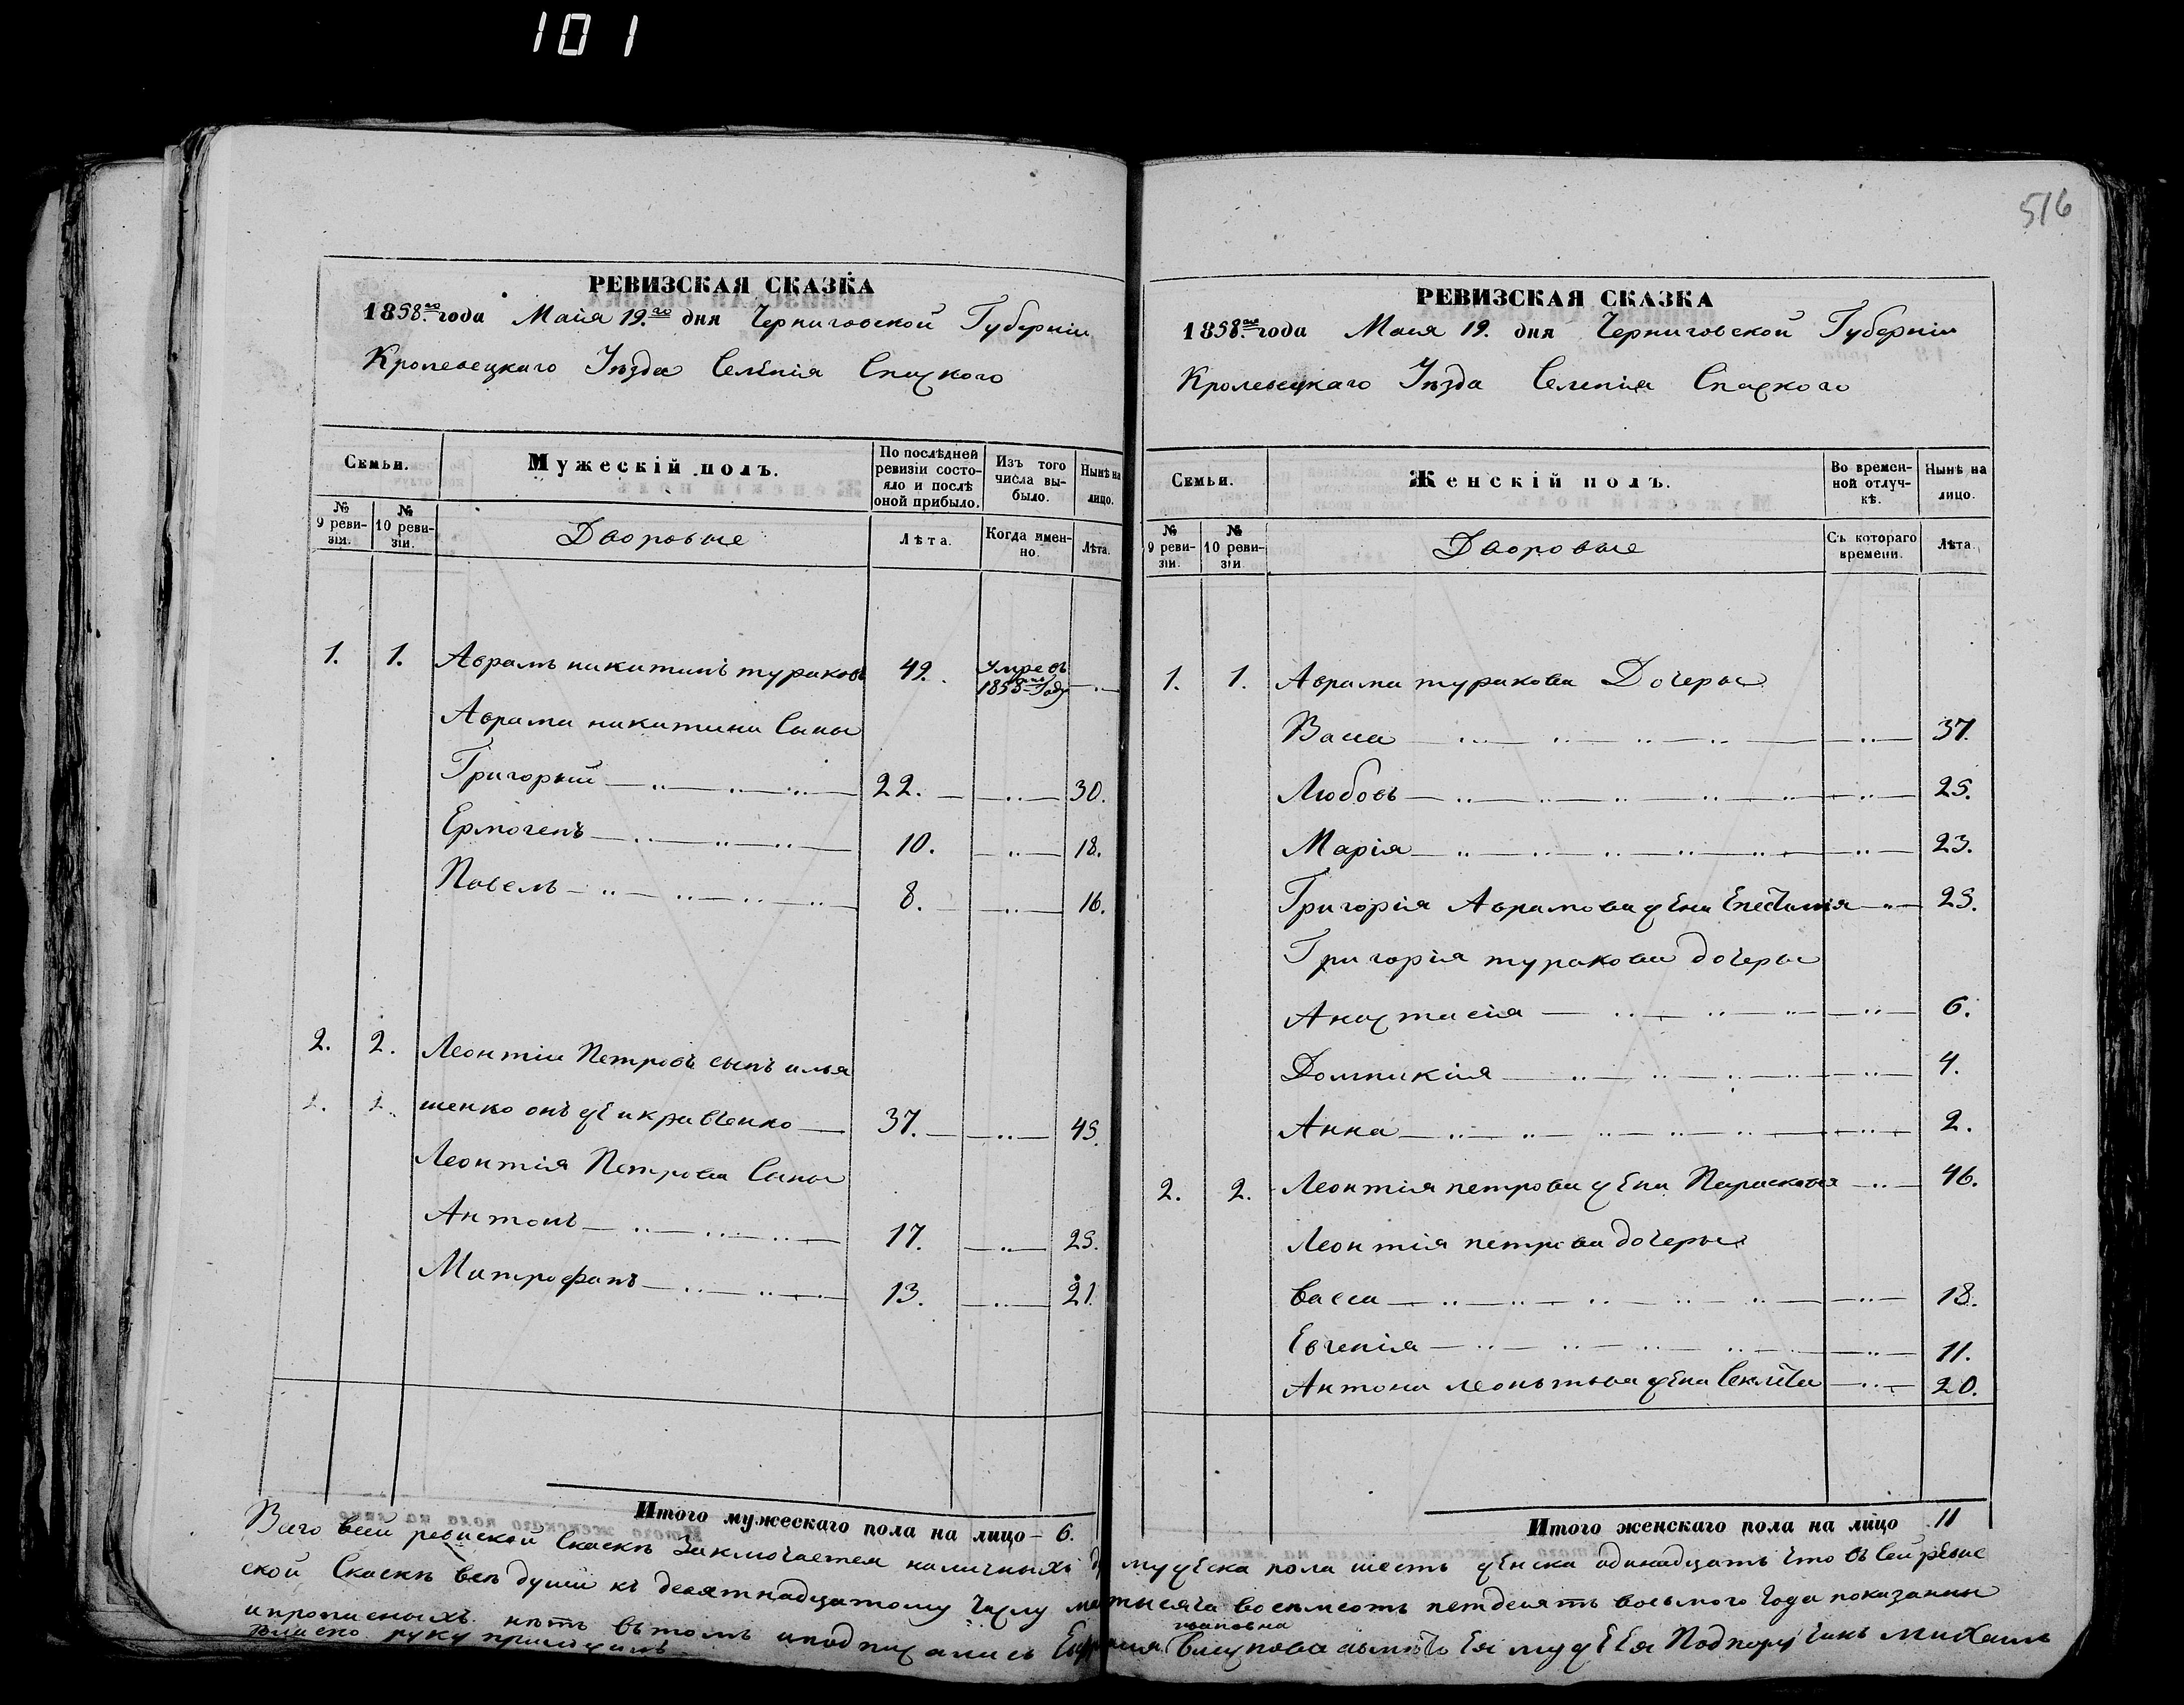 101
516
РЕВИЗСКАЯ СКАЗКА
1858.го года Маія 19.го дня Черниговской Губерніи
Кролевецкаго Уѣзда Селѣнія Спаского
Семьи.
Мужескій полъ.
По послѣдней ревизіи состояло и послѣ оной прибыло.
Изъ того числа выбыло.
Нынѣ на лицо.
№ 9 ревизіи.
№ 10 ревизіи.
Дворовые
Лѣта.
Когда именно.
Лѣта.
1. 1. Аврамъ никитинъ тураковъ 49. Умре въ 1853 Году
Аврама никитина Сыны
Григорій 22. 30.
Ермогенъ 10. 18.
Павелъ 8. 16.
2. 2. Леонтіи Петровъ сынъ илья
2. 2. шенко онъ же и кравченко 37. 45.
Леонтія Петрова Сыны
Антонъ 17. 25.
Митрофанъ 13. 21.
Итого мужескаго пола на лицо 6.
РЕВИЗСКАЯ СКАЗКА
1858. года Маія 19. дня Черниговской Губерніи
Кролевецкаго Уѣзда Селенія Спаского
Семьи.
Женскій полъ.
Во временной отлучкѣ.
Нынѣ на лицо.
№ 9 ревизіи.
№ 10 ревизіи.
Дворовые
Съ котораго времени.
Лѣта.
1. 1. Аврама туракова Дочеры
Васса 37.
Любовь 25.
Марія 23.
Григорія Аврамова жена Епестимія 25.
Григорія туракова дочеры
Анастасія 6.
Домникія 4.
Анна 2.
2. 2. Леонтія петрова жена Парасковья 46.
Леонтія петрова дочеры
Васса 18.
Евгенія 11.
Антона леонтьева жена Секлета 20.
Итого женскаго пола на лицо 11
Всего всей ревиской Скаскѣ Заключается наличныхъ мужеска пола шесть женска одинадцать что в сей ревис
ской Скаскѣ все души къ девятнадцатому числу тысяча восемсотъ петдесятъ восьмого Года показанны
ипрописныхъ нѣтъ вътомъ иподписались ея мужъ Ея Подпоручикъ михаилъ
руку приложилъ